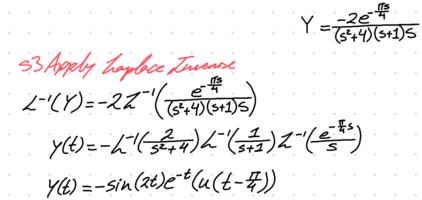 Y = \frac{-2e^{-\frac{πs}{4}}}{(s²+4)(s+1)s}
s3 Apply Laplace Inverse
ℒ⁻¹(Y) = -2ℒ⁻¹(\frac{e^{-\frac{πs}{4}}}{(s²+4)(s+1)s})
y(t) = -ℒ⁻¹(\frac{2}{s²+4})ℒ⁻¹(\frac{1}{s+1})ℒ⁻¹(\frac{e^{-\frac{π}{4}s}}{s})
y(t) = -sin(2t)e^{-t}(u(t-\frac{π}{4}))